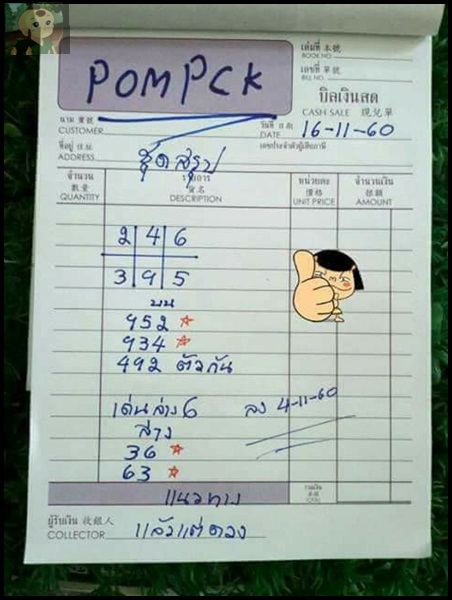 เล่มที่ 本號
BOOK NO.
เลขที่ 單號
BILL NO.
POMPCK
บิลเงินสด
CASH SALE 現兑單
นาม 寶號
CUSTOMER
วันที่ 日期
DATE 16-11-60
ที่อยู่ 住址
ADDRESS
เลขประจำตัวผู้เสียภาษี
ชุดสรุป
จำนวน 數量 QUANTITY
รายการ 貨名 DESCRIPTION
หน่วยละ 價格 UNIT PRICE
จำนวนเงิน 銀額 AMOUNT
2 4 6
3 9 5
บน
952
934
492 ตัวกัน
เด่นล่าง 6
ลง 4-11-60
ล่าง
36
63
แนวทาง
รวมเงิน
TOTAL
ผู้รับเงิน 收銀人
COLLECTOR
แล้วแต่ดวง